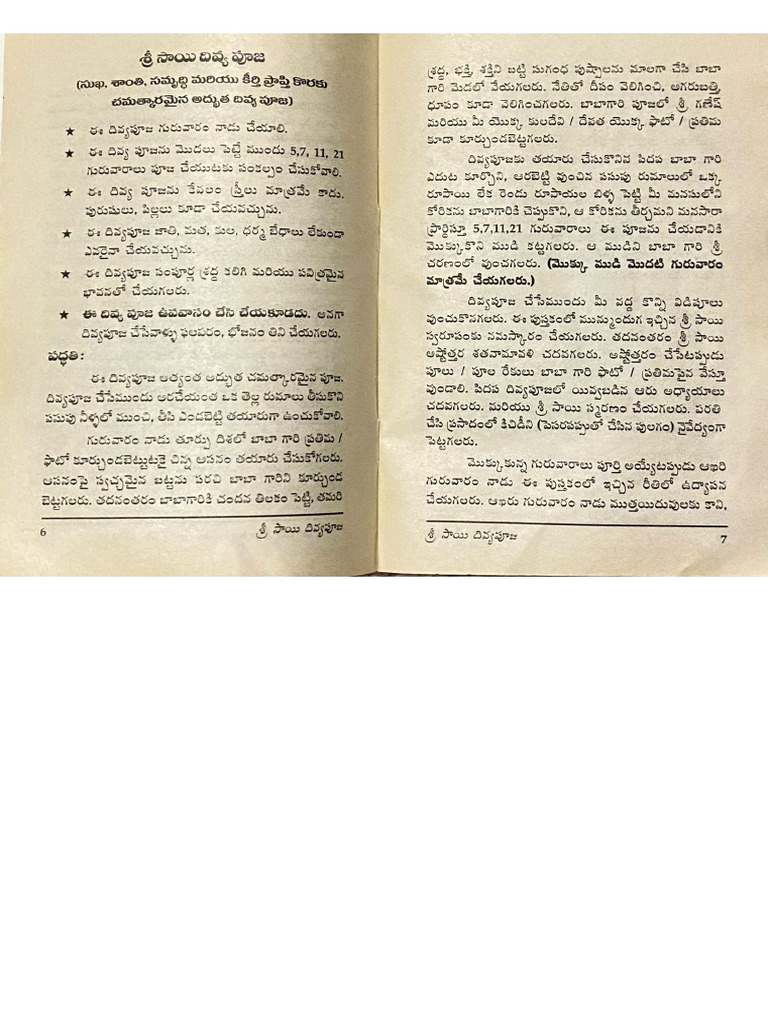 శ్రీ సాయి దివ్య పూజ
(సుఖ, శాంతి, సమృద్ధి మరియు కీర్తి ప్రాప్తి కొరకు
చమత్కారమైన అద్భుత దివ్య పూజ)
★ ఈ దివ్యపూజ గురువారం నాడు చేయాలి.
★ ఈ దివ్య పూజను మొదలు పెట్టే ముందు 5,7, 11, 21
గురువారాలు పూజ చేయుటకు సంకల్పం చేసుకోవాలి.
★ ఈ దివ్య పూజను కేవలం స్త్రీలు మాత్రమే కాదు.
పురుషులు, పిల్లలు కూడా చేయవచ్చును.
★ ఈ దివ్యపూజ జాతి, మత, కుల, ధర్మ బేధాలు లేకుండా
ఎవరైనా చేయవచ్చును.
★ ఈ దివ్యపూజ సంపూర్ణ శ్రద్ధ కలిగి మరియు పవిత్రమైన
భావనలో చేయగలరు.
★ ఈ దివ్య పూజ ఉపవాసం చేసి చేయకూడదు. అనగా
దివ్యపూజ చేసేవాళ్ళు ఫలపరం, భోజనం తిని చేయగలరు.
పద్ధతి :
ఈ దివ్యపూజ అత్యంత అద్భుత చమత్కారమైన పూజ.
దివ్యపూజ చేసేముందు అరచేయంత ఒక తెల్ల రుమాలు తీసుకొని
పసుపు నీళ్ళలో ముంచి, తీసి ఎండబెట్టి తయారుగా ఉంచుకోవాలి.
గురువారం నాడు తూర్పు దిశలో బాబా గారి ప్రతిమ /
ఫొటో కూర్చుండబెట్టుటకై చిన్న ఆసనం తయారు చేసుకోగలరు.
ఆసనంపై స్వచ్ఛమైన బట్టను పరచి బాబా గారిని కూర్చుండ
బెట్టగలరు. తదనంతరం బాబాగారికి చందన తిలకం పెట్టి, తమరి
6
శ్రీ సాయి దివ్యపూజ
శ్రద్ధ, భక్తి, శక్తిని బట్టి సుగంధ పుష్పాలను మాలగా చేసి బాబా
గారి మెడలో వేయగలరు. నేతితో దీపం వెలిగించి, అగరుబత్తి,
ధూపం కూడా వెలిగించగలరు. బాబాగారి పూజలో శ్రీ గణేష్
మరియు మీ యొక్క కులదేవి / దేవత యొక్క ఫొటో / ప్రతిమ
కూడా కూర్చుండబెట్టగలరు.
దివ్యపూజకు తయారు చేసుకొనిన పిదప బాబా గారి
ఎదుట కూర్చొని, ఆరబెట్టి వుంచిన పసుపు రుమాలులో ఒక్క
రూపాయి లేక రెండు రూపాయల బిళ్ళ పెట్టి మీ మనసులోని
కోరికను బాబాగారికి చెప్పుకొని, ఆ కోరికను తీర్చమని మనసారా
ప్రార్థిస్తూ 5,7,11,21 గురువారాలు ఈ పూజను చేయడానికి
మొక్కుకొని ముడి కట్టగలరు. ఆ ముడిని బాబా గారి శ్రీ
చరణంలో వుంచగలరు. (మొక్కు ముడి మొదటి గురువారం
మాత్రమే చేయగలరు.)
దివ్యపూజ చేసేముందు మీ వద్ద కొన్ని విడిపూలు
వుంచుకొనగలరు. ఈ పుస్తకంలో మున్ముందుగ ఇచ్చిన శ్రీ సాయి
స్వరూపంకు నమస్కారం చేయగలరు. తదనంతరం శ్రీ సాయి
అష్టోత్తర శతనామావళి చదవగలరు. అష్టోత్తరం చేసేటప్పుడు
పూలు / పూల రేకులు బాబా గారి ఫొటో / ప్రతిమపైన వేస్తూ
వుండాలి. పిదప దివ్యపూజలో యివ్వబడిన ఆరు అధ్యాయాలు
చదవగలరు. మరియు శ్రీ సాయి స్మరణం చేయగలరు. హరతి
చేసి ప్రసాదంలో కిచిడీని (పెసరపప్పుతో చేసిన పులగం) నైవేద్యంగా
పెట్టగలరు.
మొక్కుకున్న గురువారాలు పూర్తి అయ్యేటప్పుడు ఆఖరి
గురువారం నాడు ఈ పుస్తకంలో ఇచ్చిన రీతిలో ఉద్యాపన
చేయగలరు. ఆఖరు గురువారం నాడు ముత్తయిదువులకు కాని,
శ్రీ సాయి దివ్యపూజ
7